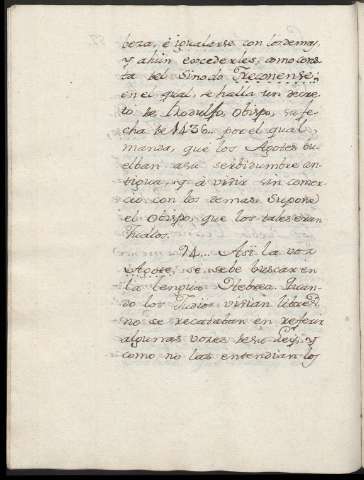 beza, è igualarse con los demas,
y ahun excederles, como cons
ta del Sinodo Triconense,
en el qual, se halla un decre
to de Rodulfo, Obispo, su fe
cha de 1436.. por el qual
manda, que los Agotes bu
elban a su serbidumbre an
tigua, y à vivir sin comer
cio con los demas: Supone
el Obispo, que los tales eran
Judios.
94... Asi la voz
Agote, se debe buscar en
la lengua Hebrea. Quan
do los Judios vivian libres,
no se recataban en referir
algunas voces de su Ley, y
como no las entendian los